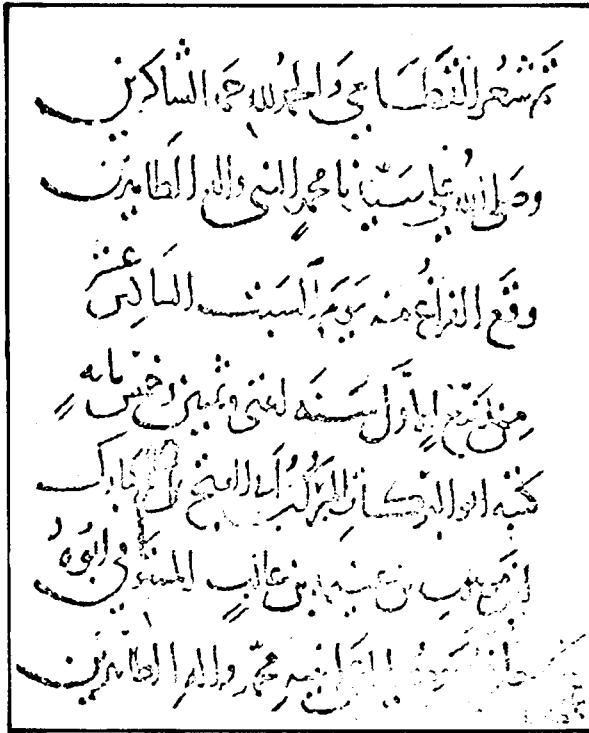 تم شعر القطامي والحمد لله حمد الشاكرين
وصلى الله على سيدنا محمد النبي واله الطاهرين
وقع الفراغ منه يوم السبت السادس عشر
من ربيع الاول سنة اثنى وثمنين وخمس مايه
كتبه ابو البركات بن ابي الفتح بن المبارك
بن بن بن غالب المستوفي ابوه
محمد واله الطاهرين